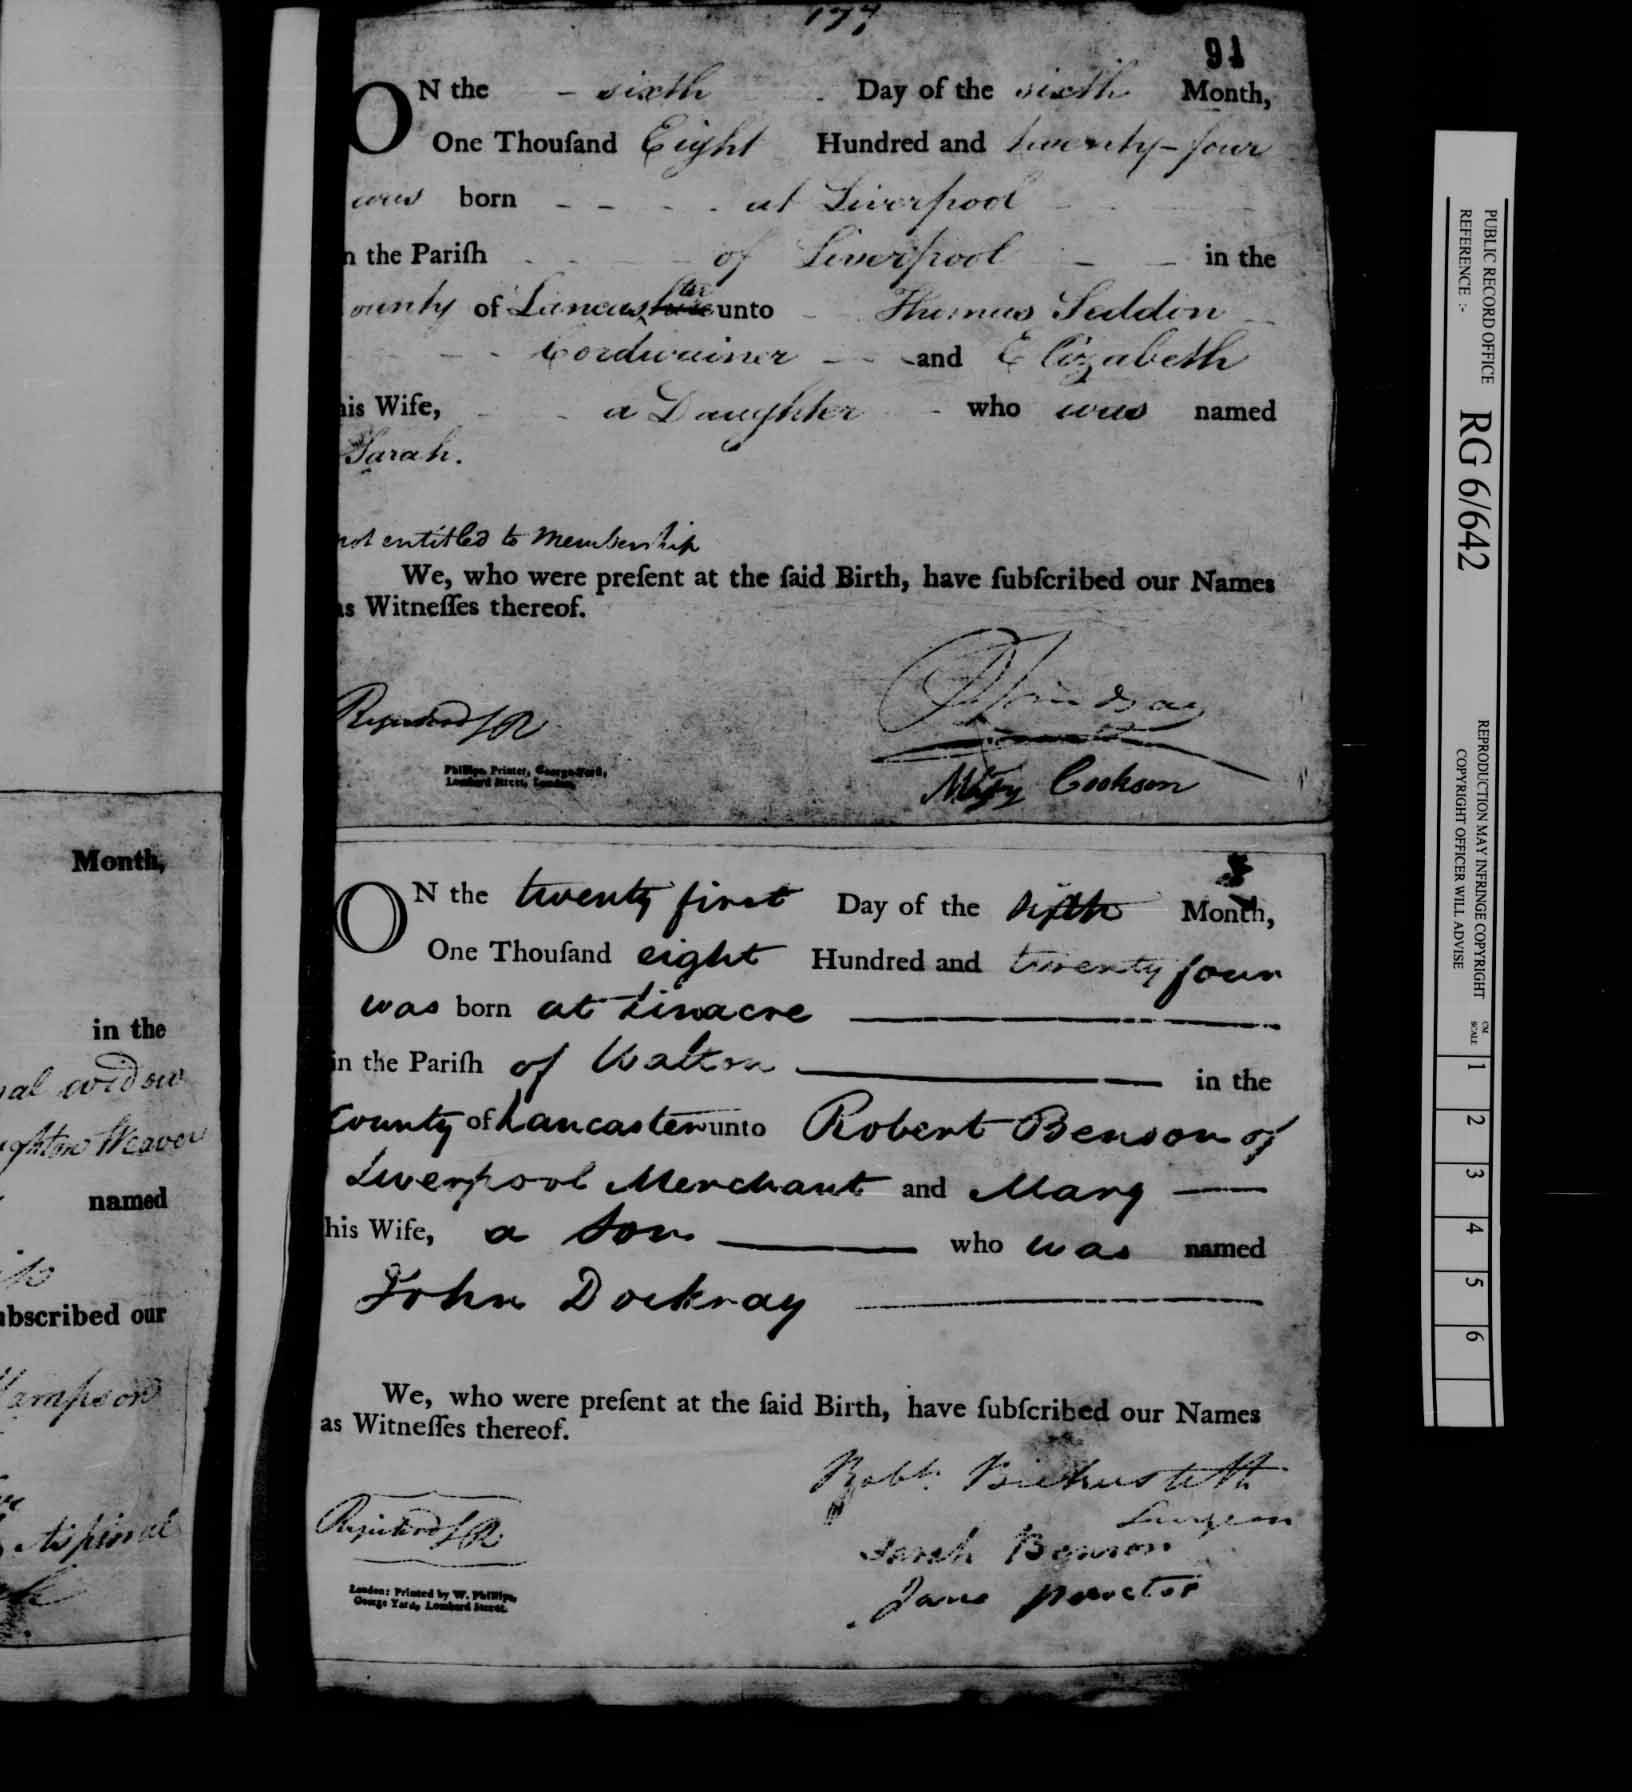 177
91
ON the - sixth Day of the sixth Month,
One Thouſand Eight Hundred and twenty-four
was born - - - - at Liverpool
n the Pariſh of Liverpool - - in the
ounty of Lancaster unto Thomas Seddon
Cordwainer - - and Elizabeth
his Wife, a Daughter - who was named
Sarah.
not entitled to Membership
We, who were preſent at the ſaid Birth, have ſubſcribed our Names
as Witneſſes thereof.
Lindsay
Registered
Phillips, Printer, George-Yard,
Lombard Street, London.
Mary Cookson
ON the twenty first Day of the sixth Month,
One Thouſand eight Hundred and twenty four
was born at Linacre
in the Pariſh of Walton in the
County of Lancaster unto Robert Benson of
Liverpool Merchant and Mary
his Wife, a Son who was named
John Dockray
We, who were preſent at the ſaid Birth, have ſubſcribed our Names
as Witneſſes thereof.
Robt. Bickersteth
Surgeon
Registered
Sarah Benson
Jane Proctor
London: Printed by W. Phillips,
George Yard, Lombard Street.
Month,
in the
widow
Weaver
named
bscribed our
ampson
Aspinal
PUBLIC RECORD OFFICE
REFERENCE :-
RG 6/642
REPRODUCTION MAY INFRINGE COPYRIGHT
COPYRIGHT OFFICER WILL ADVISE
CM
SCALE
1
2
3
4
5
6